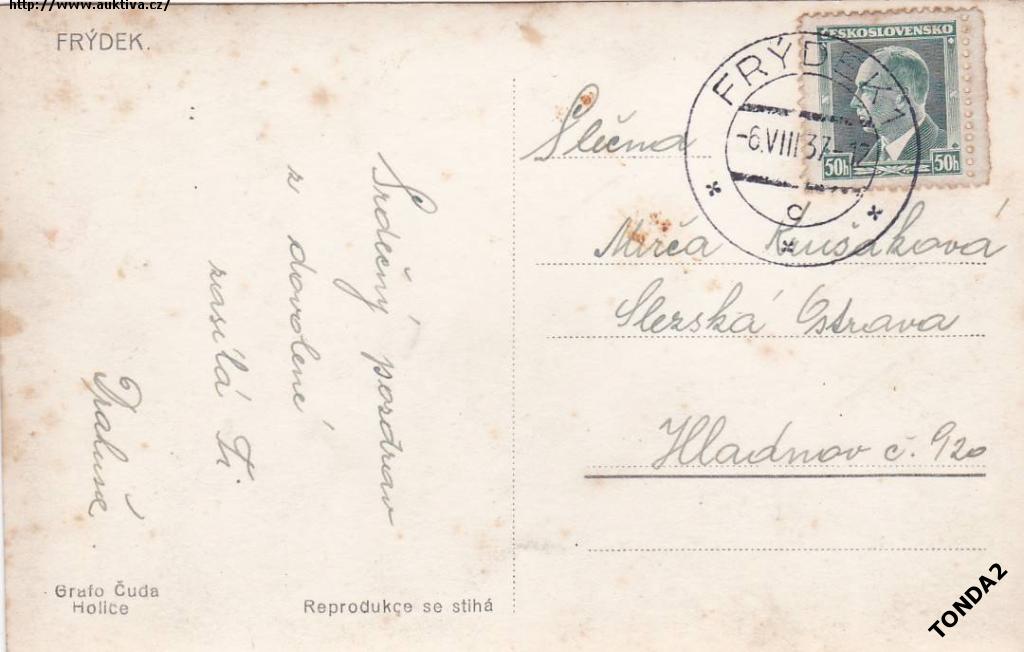 http://www.auktiva.cz/
FRÝDEK.
ČESKOSLOVENSKO
50h 50h
FRÝDEK 1
-6.VIII 37-12
d
Slečna
Mirča Krušáková
Slezská Ostrava
Hladnov č. 920
Srdečný pozdrav
z dovolené
zasílá Ti
Grafo Čuda
Holice
Reprodukce se stihá
TONDA2